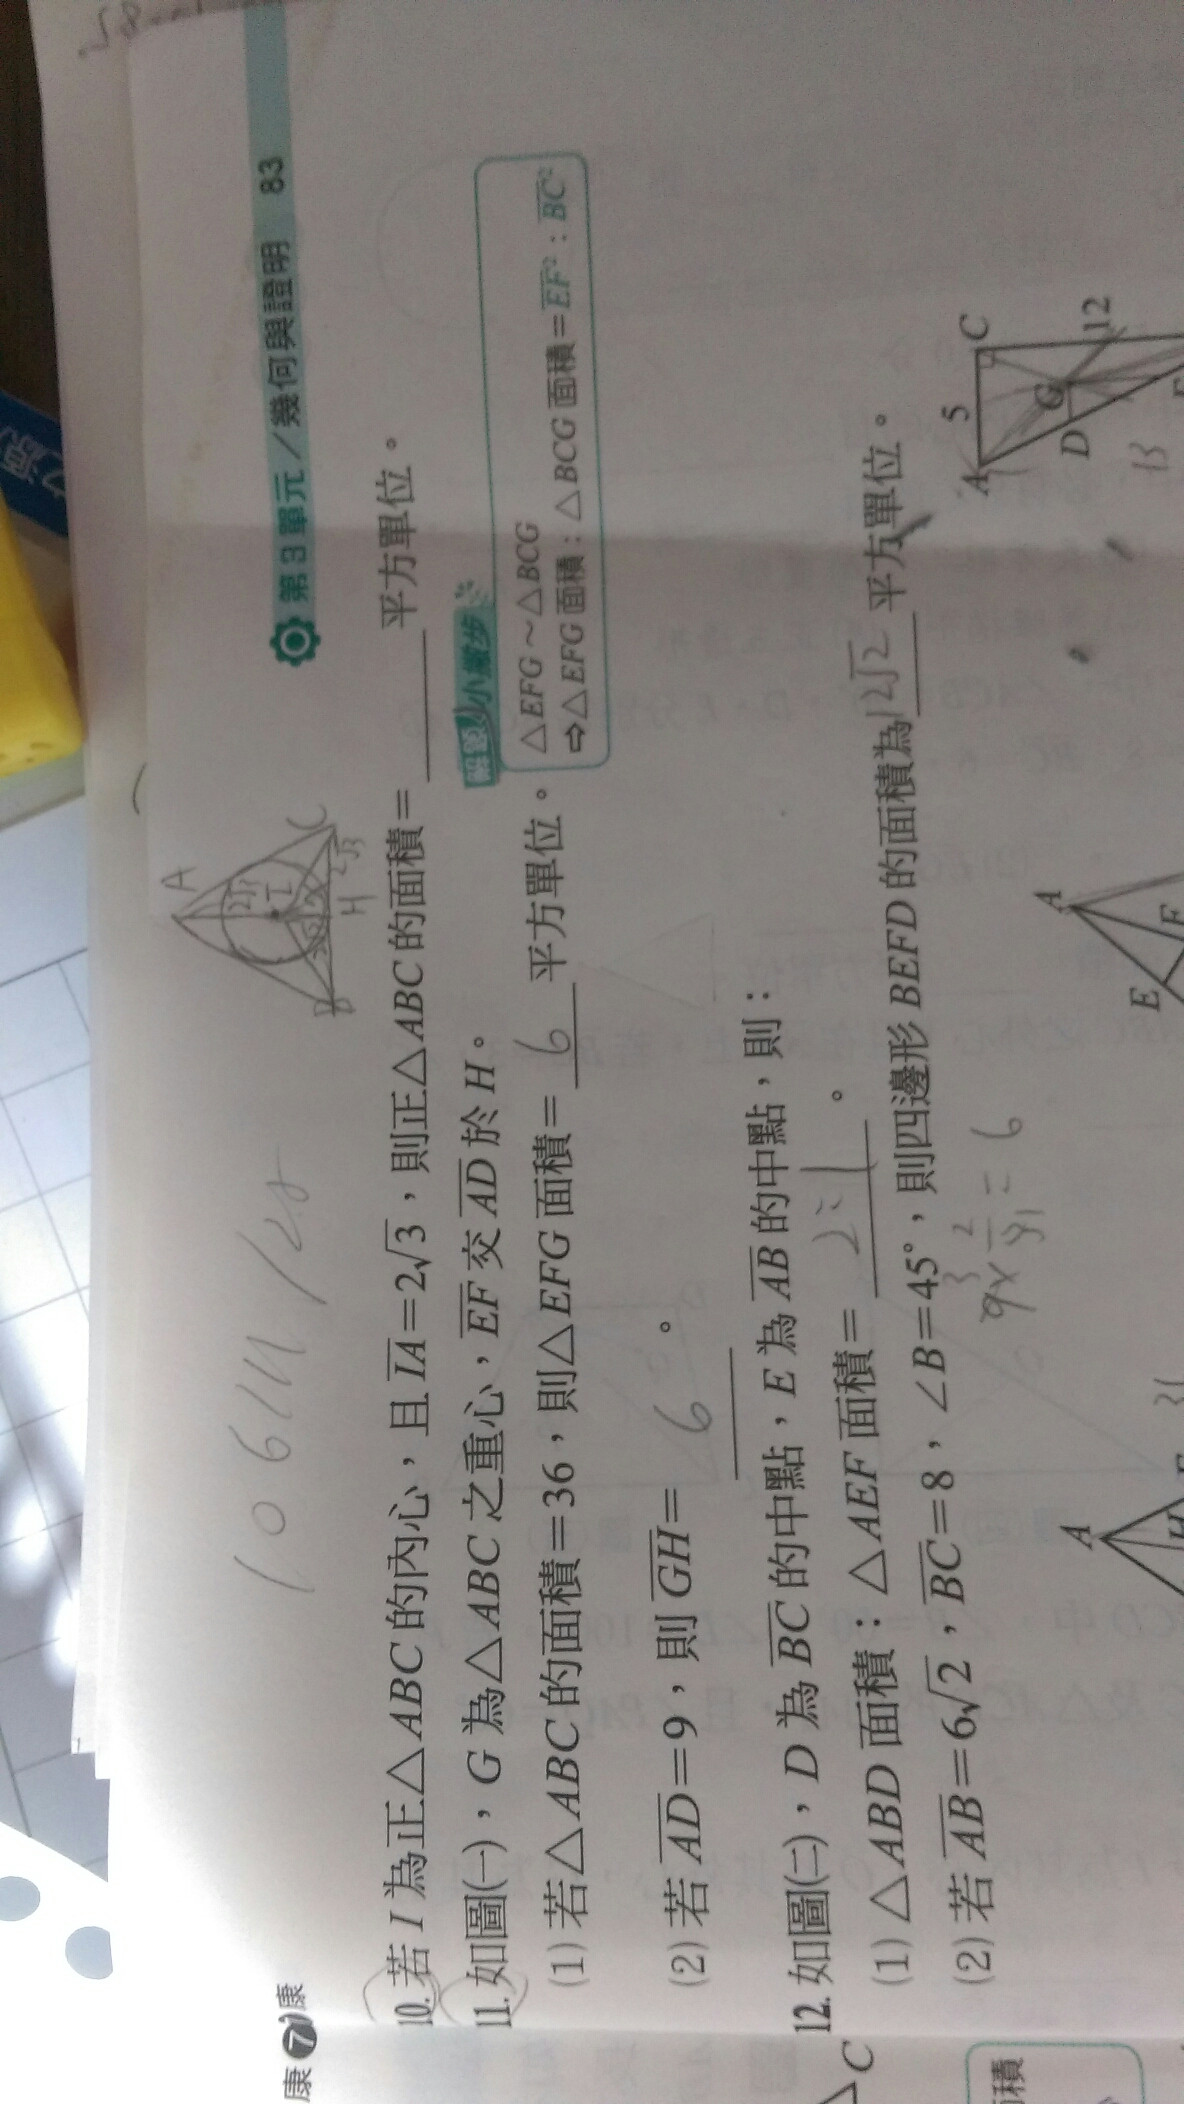 康7康
第3單元／幾何與證明 83
10. 若 I 為正△ABC 的內心，且 IA=2√3，則正△ABC 的面積=______平方單位。
A
B
H
C
I
11. 如圖(一)，G 為△ABC 之重心，EF 交 AD 於 H。
(1) 若△ABC 的面積=36，則△EFG 面積= 6 平方單位。
(2) 若 AD=9，則 GH= 6 。
解題小撇步
△EFG～△BCG
⇨△EFG 面積：△BCG 面積=EF²：BC²
12. 如圖(二)，D 為 BC 的中點，E 為 AB 的中點，則：
(1) △ABD 面積：△AEF 面積= 2:1 。
(2) 若 AB=6√2，BC=8，∠B=45°，則四邊形 BEFD 的面積為 12√2 平方單位。
A
5
C
G
D
12
13
A
E
F
A
H
C
面積